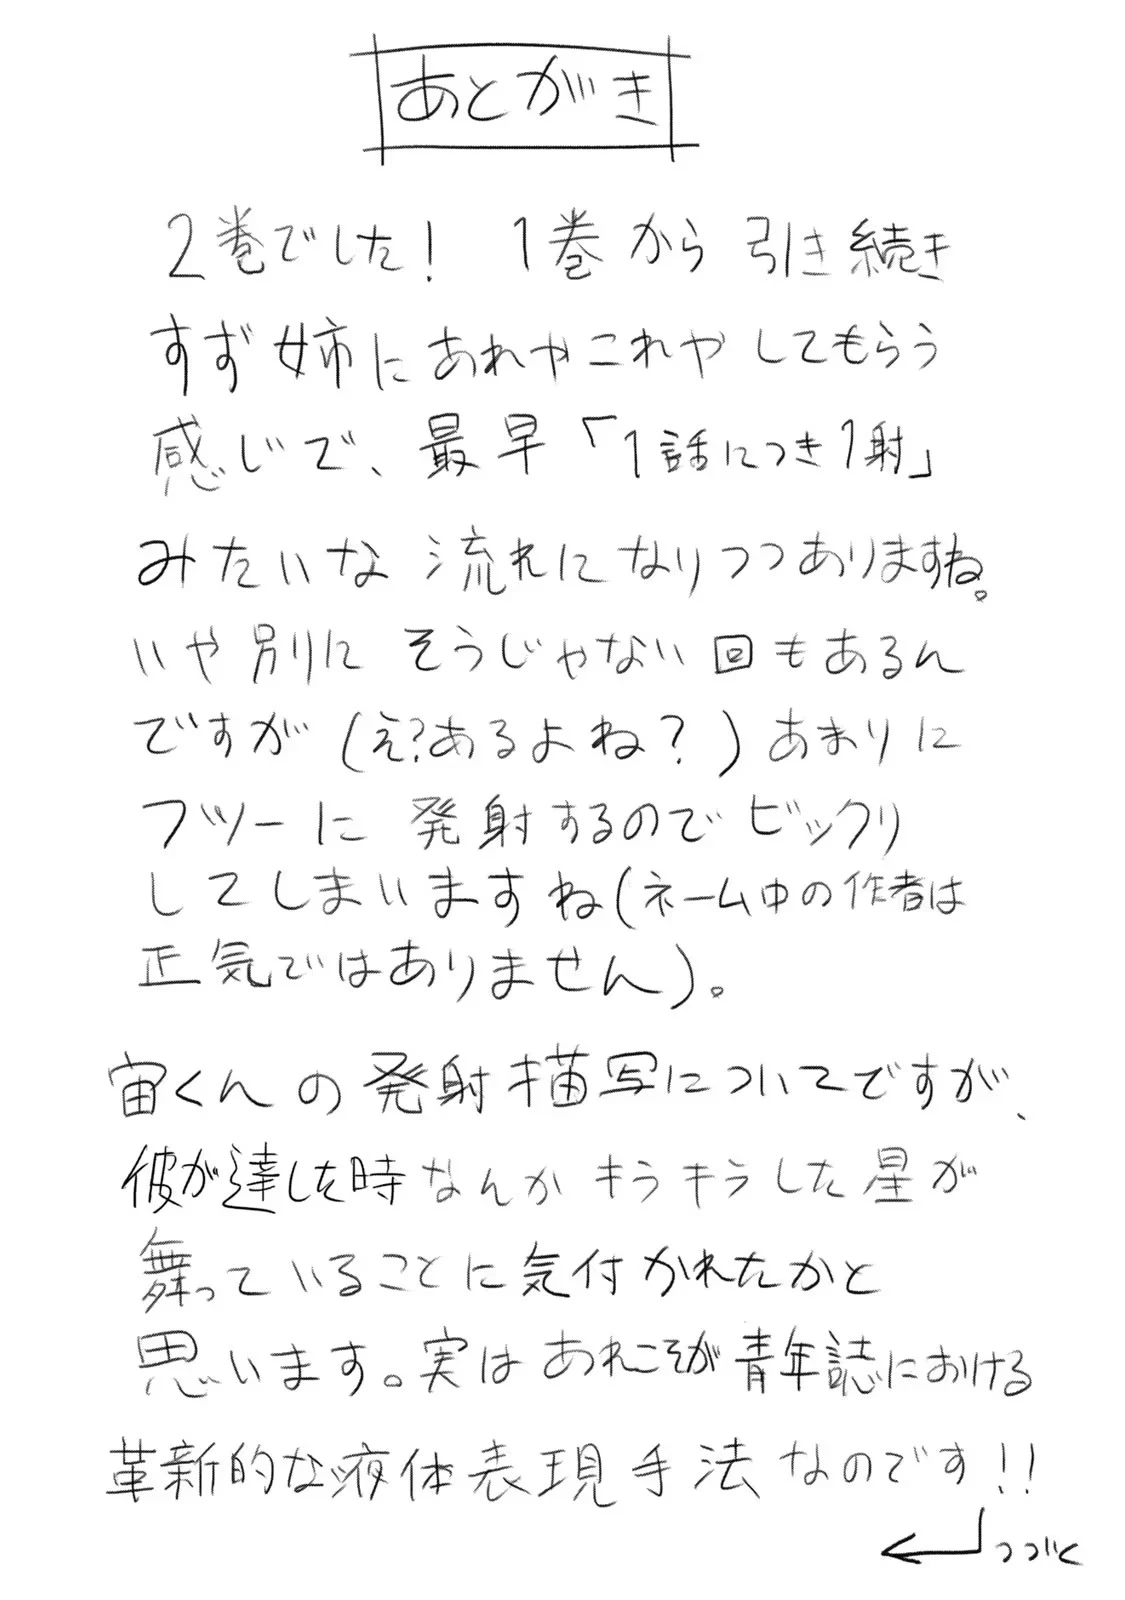 あとがき
2巻でした! 1巻から引き続き
すず姉にあれやこれやしてもらう
感じで、最早「1話につき1射」
みたいな流れになりつつありますね。
いや別にそうじゃない回もあるん
ですが(え?あるよね?)あまりに
フツーに発射するのでビックリ
してしまいますね(ネーム中の作者は
正気ではありません)。
宙くんの発射描写についてですが、
彼が達した時なんかキラキラした星が
舞っていることに気付かれたかと
思います。実はあれこそが青年誌における
革新的な液体表現手法なのです!!
つづく